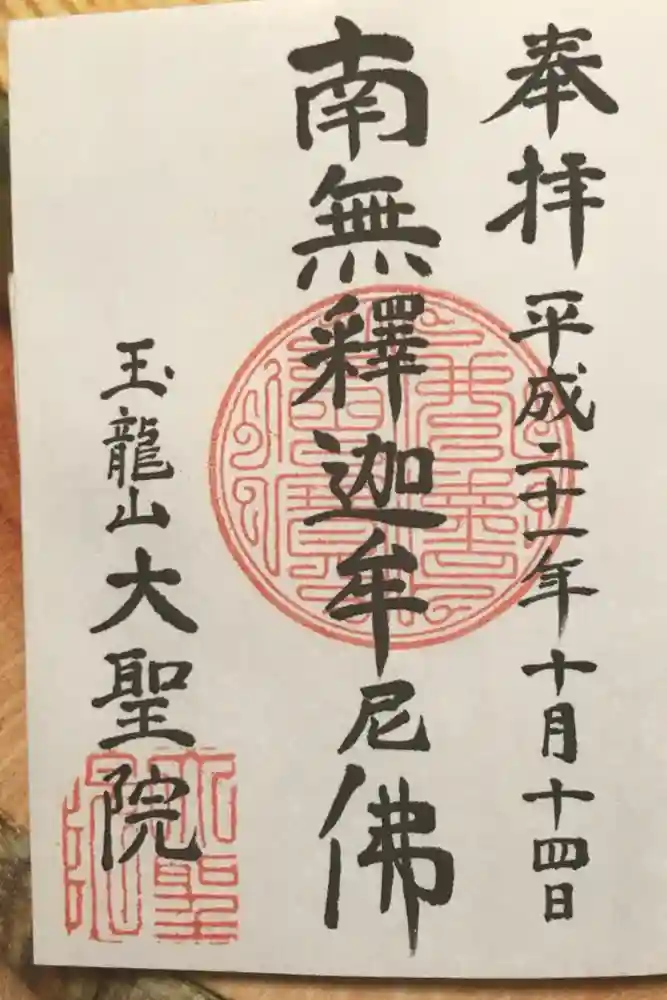 奉拝 平成二十一年十月十四日
南無釋迦牟尼佛
玉龍山 大聖院